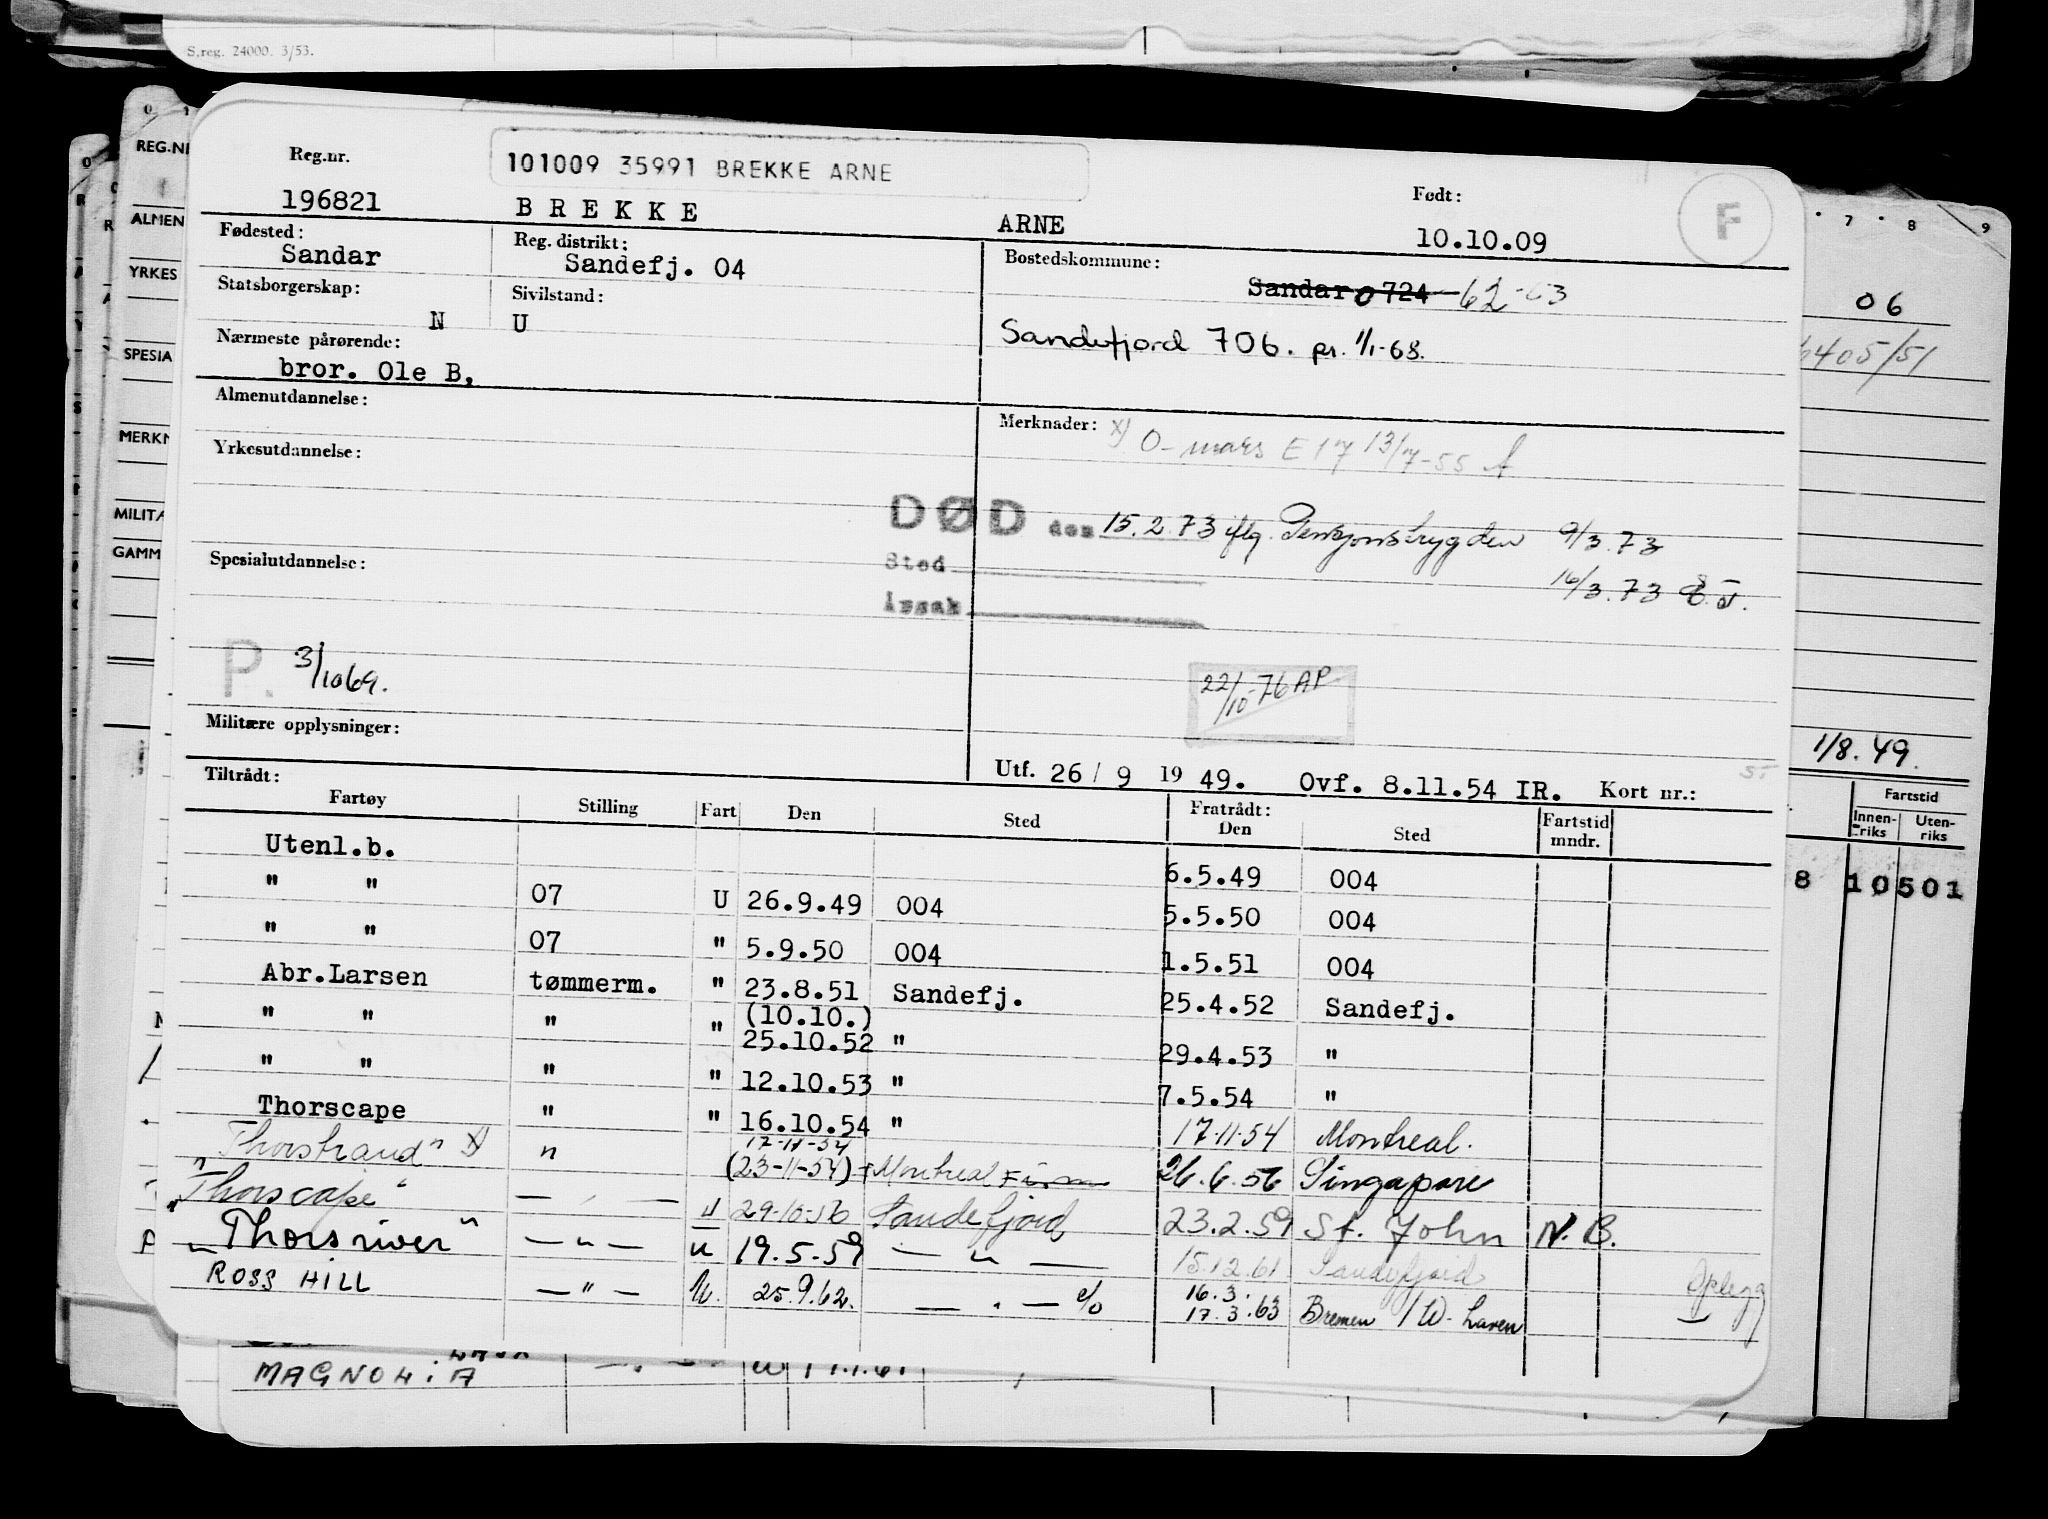 S.reg. 24000. 3/53.
REG.N
ALMEN
YRKES
SPESIA
MERKN
MILITÆ
GAMM
7 8 9
06
405/51
1/8.49.
Fartstid
Innen-riks Uten-riks
8 10 501
Reg.nr.
101009 35991 BREKKE ARNE
Født:
F
196821 BREKKE ARNE 10.10.09
Fødested: Reg. distrikt: Bostedskommune:
Sandar Sandefj. 04
Sandar 0724 62-63
Statsborgerskap: Sivilstand:
N U
Sandefjord 706. pr. 1/1-68.
Nærmeste pårørende:
bror. Ole B,
Almenutdannelse: Merknader:
x) O-mars E17 13/7-55
Yrkesutdannelse:
DØD den 15.2.73 iflg. Pensjonstrygden 9/3.73
Sted
16/3.73
Årsak
Spesialutdannelse:
P. 3/10 69.
22/10-76 AP
Militære opplysninger:
Utf. 26/9 1949. Ovf. 8.11.54 IR. Kort nr.:
Tiltrådt: Fratrådt:
Fartøy Stilling Fart Den Sted Den Sted Fartstid mndr.
Utenl.b. 6.5.49 004
" " 07 U 26.9.49 004 5.5.50 004
" " 07 " 5.9.50 004 1.5.51 004
Abr.Larsen tømmerm. " 23.8.51 Sandefj. 25.4.52 Sandefj.
(10.10.)
" " " " 25.10.52 " 29.4.53 "
" " " " 12.10.53 " 7.5.54 "
Thorscape " " 16.10.54 " 17.11.54 Montreal.
17-11-54
"Thorstrand" x) " (23-11-54) Montreal 26.6.56 Singapore
"Thorscape" — " — u 29-10-56 Sandefjord 23.2.59 St. John N.B.
"Thorsriver" — " — u 19.5-59 — " — 15.12.61 Sandefjord
Opplegg
ROSS HILL — " — U. 25.9.62. — " — c/o 16.3.
17.3.63 Bremen / W-haven
MAGNOLIA